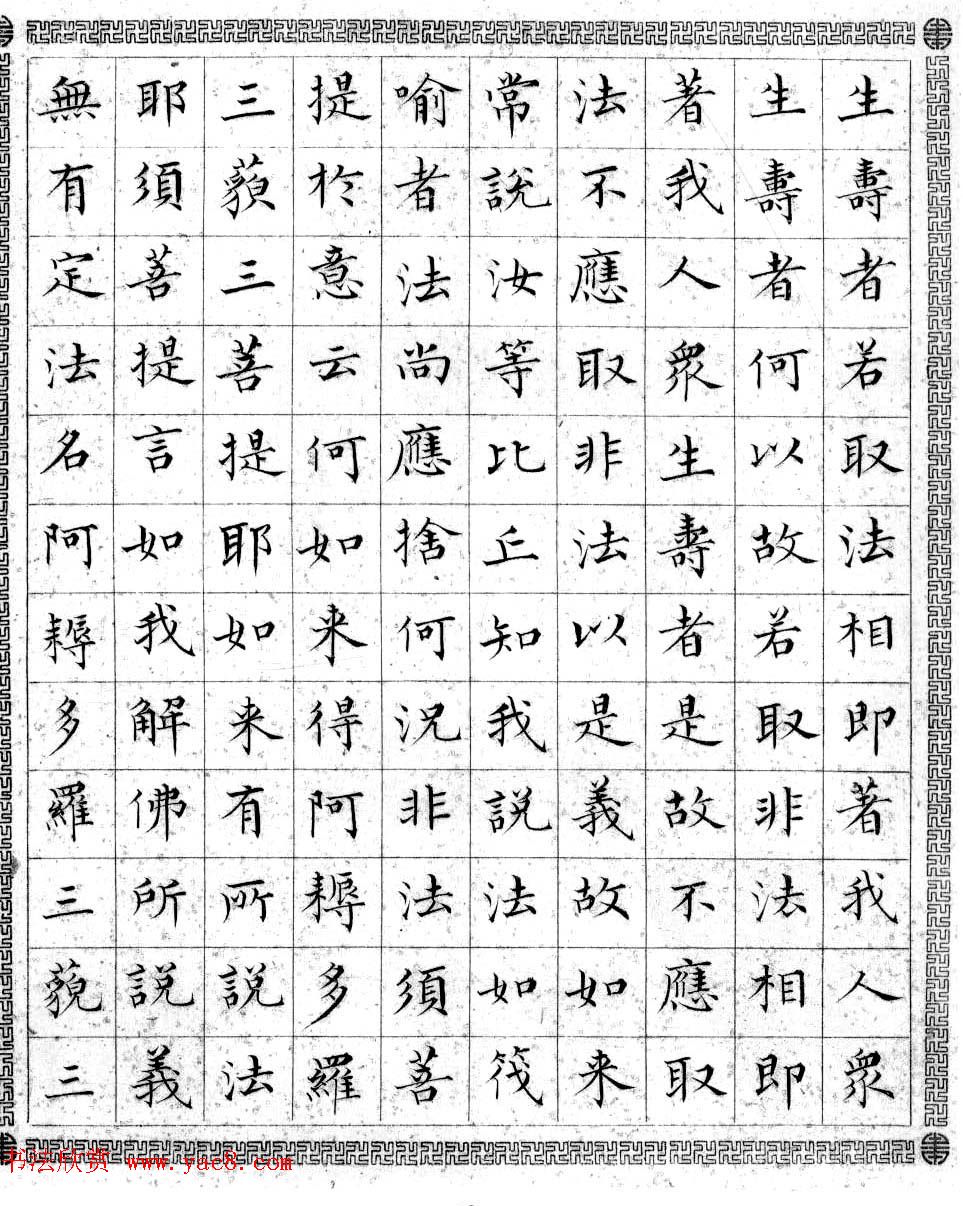 生壽者若取法相即著我人衆
生壽者何以故若取非法相即
著我人衆生壽者是故不應取
法不應取非法以是義故如来
常說汝等比丘知我說法如筏
喻者法尚應捨何況非法須菩
提於意云何如来得阿耨多羅
三藐三菩提耶如来有所說法
耶須菩提言如我解佛所說義
無有定法名阿耨多羅三藐三
书法欣赏 www.yac8.com